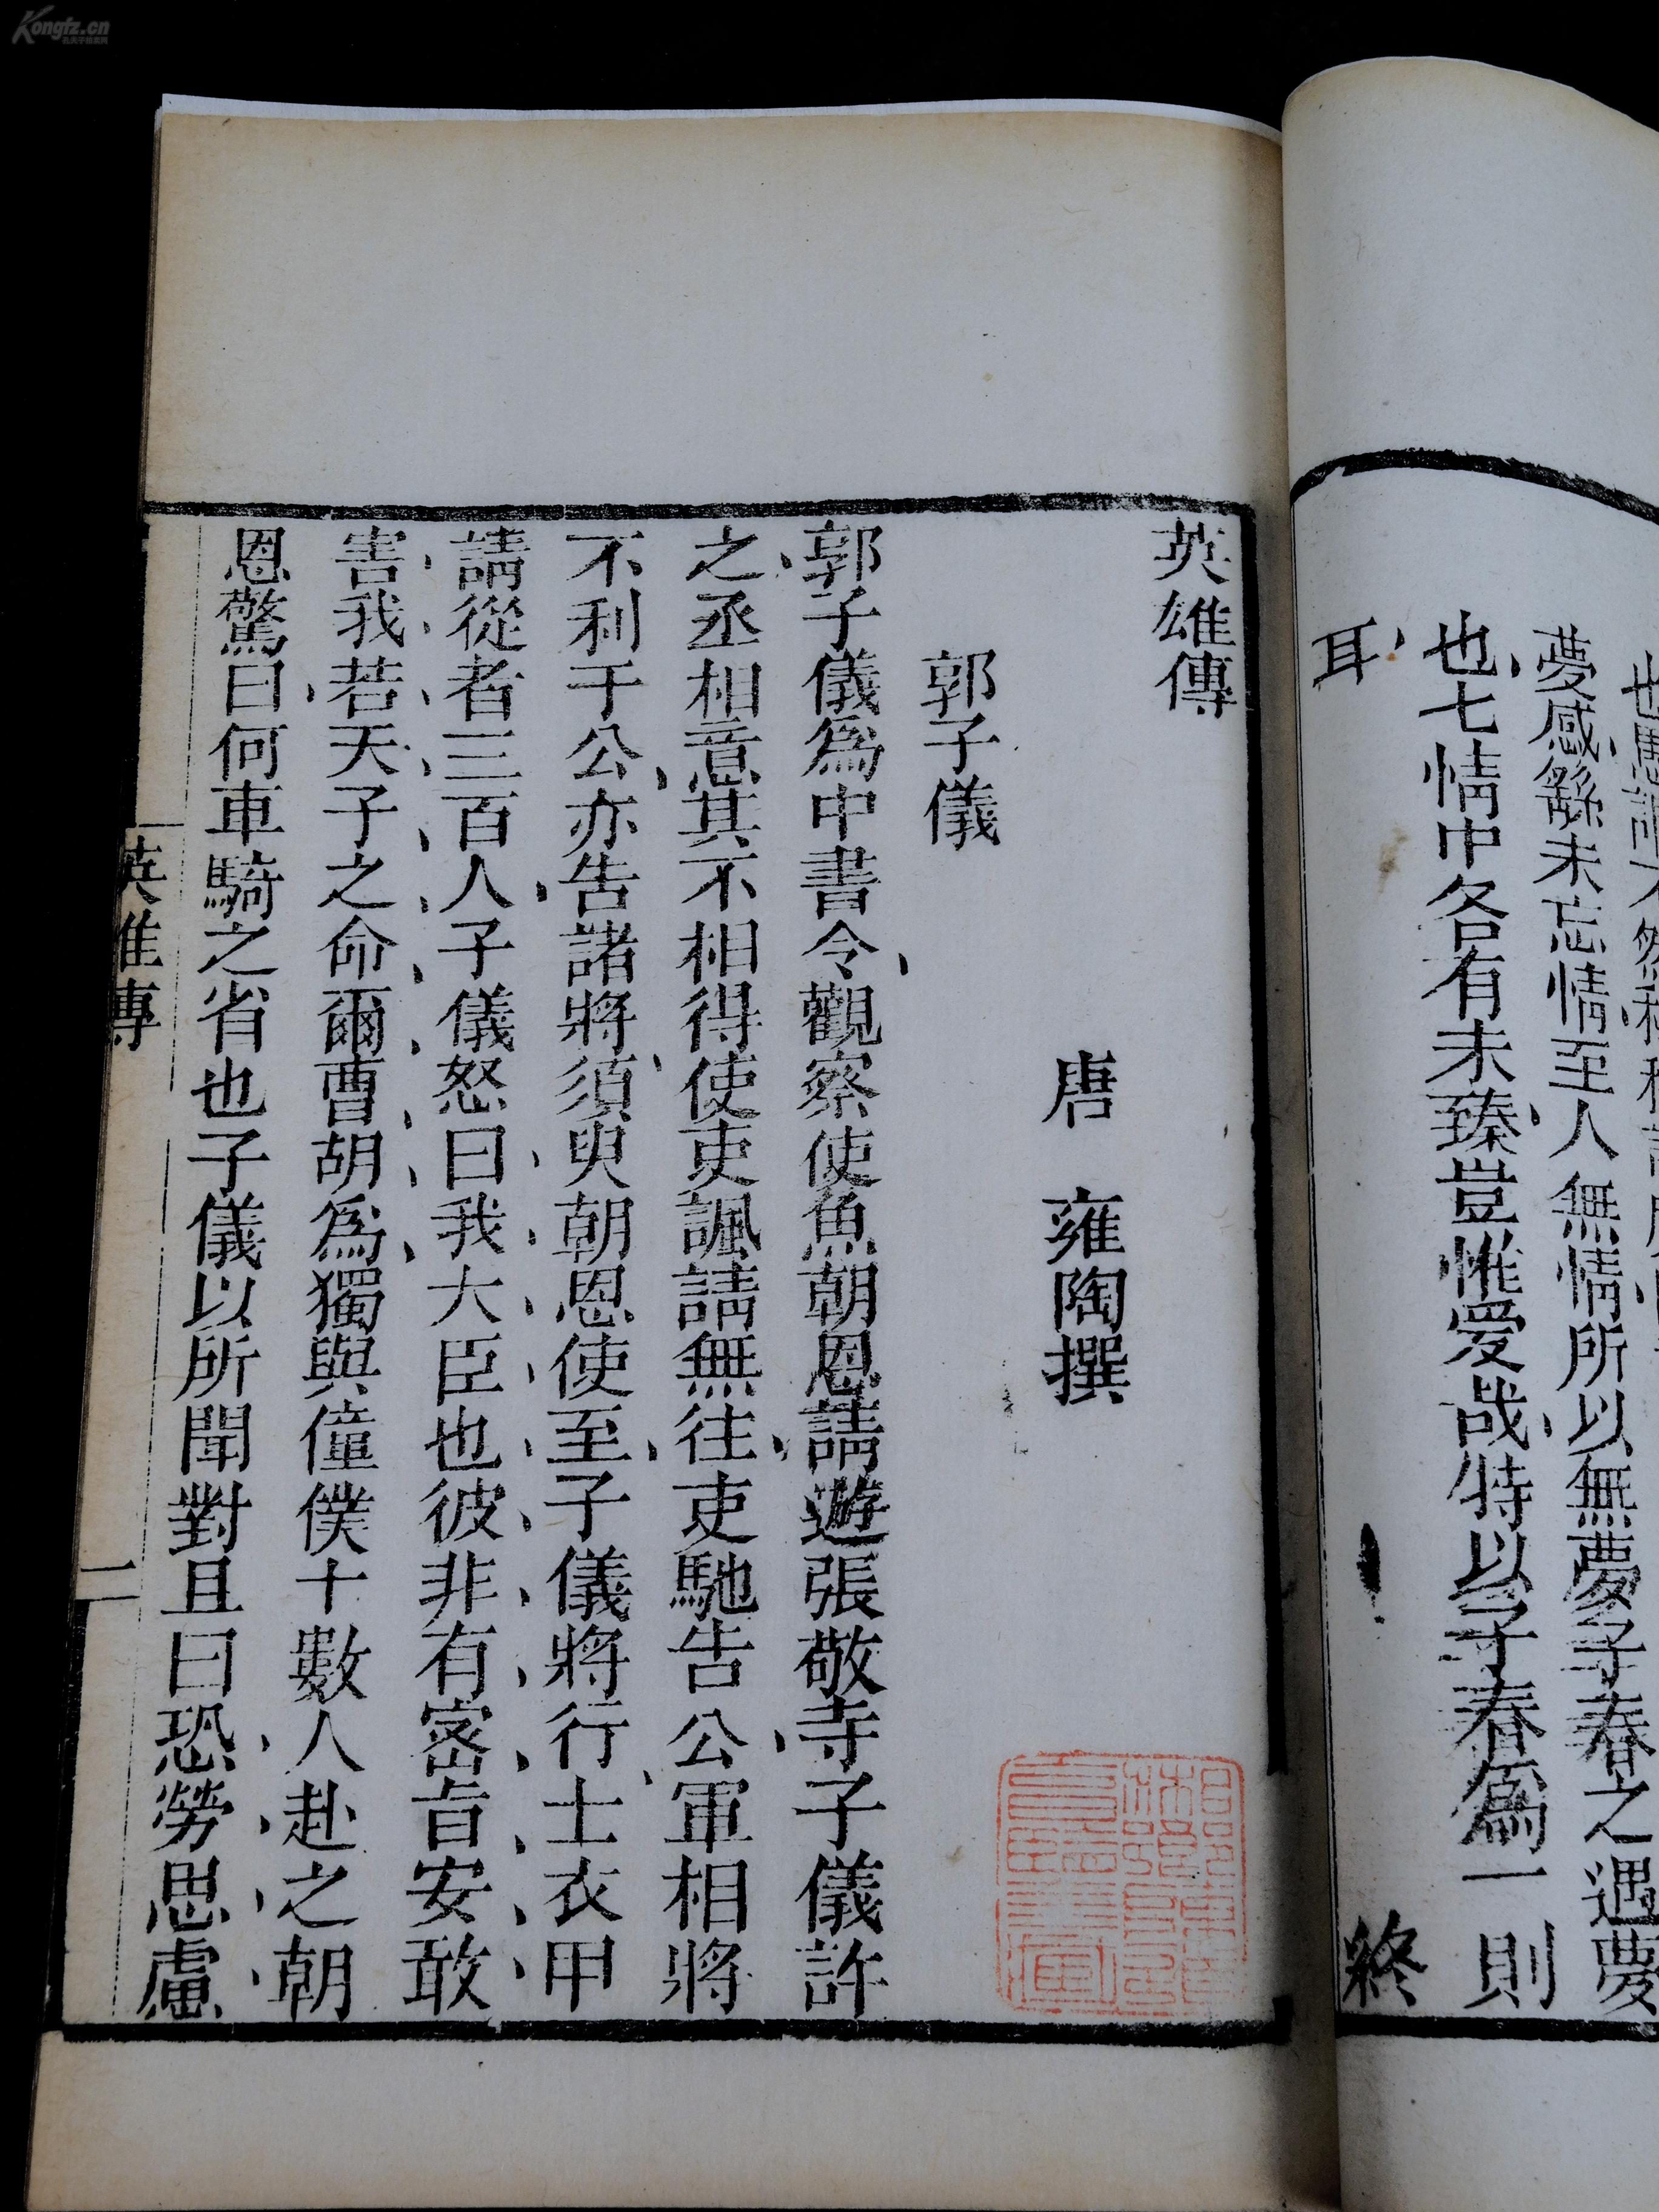 Kongfz.cn
夢感繇未忘情至人無情所以無夢子春之遇夢
也七情中各有未臻豈惟愛哉特以子春爲一則
耳
終
英雄傳
唐 雍陶撰
郭子儀
郭子儀爲中書令觀察使魚朝恩請遊張敬寺子儀許
之丞相意其不相得使吏諷請無往吏馳告公軍相將
不利于公亦告諸將須臾朝恩使至子儀將行士衣甲
請從者三百人子儀怒曰我大臣也彼非有密旨安敢
害我若天子之命爾曹胡爲獨與僮僕十數人赴之朝
恩驚曰何車騎之省也子儀以所聞對且曰恐勞思慮
英雄傳
二